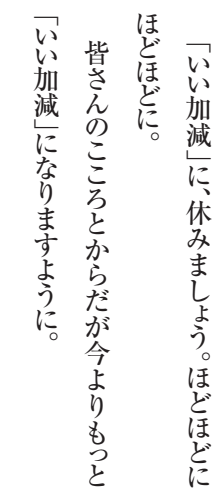 「いい加減」に、休みましょう。ほどほどに
ほどほどに。
皆さんのこころとからだが今よりもっと
「いい加減」になりますように。